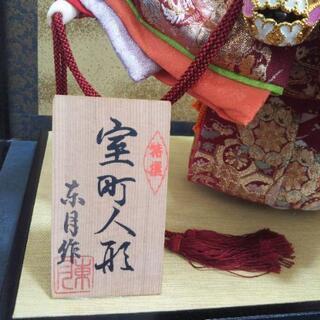 特選
室町人形
東月作
東